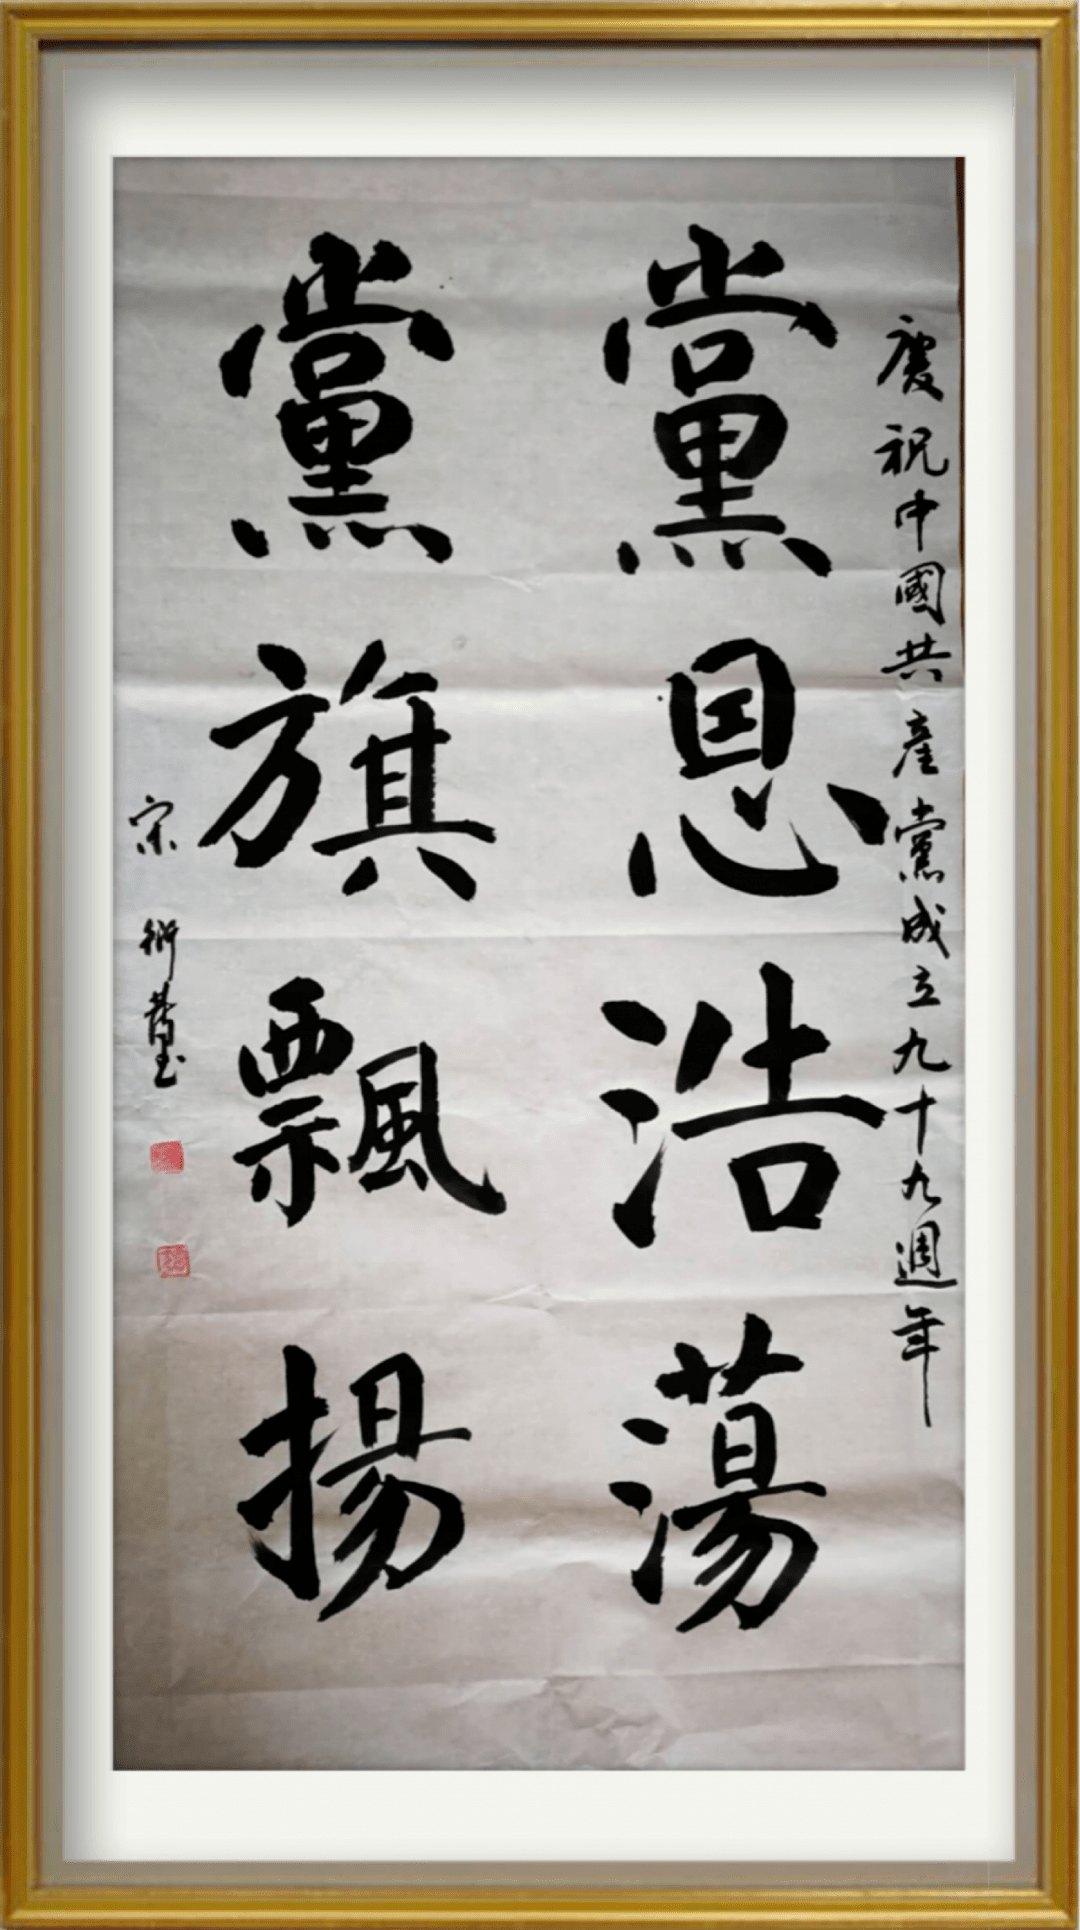 慶祝中國共產黨成立九十九週年
黨恩浩蕩
黨旗飄揚
宋衍